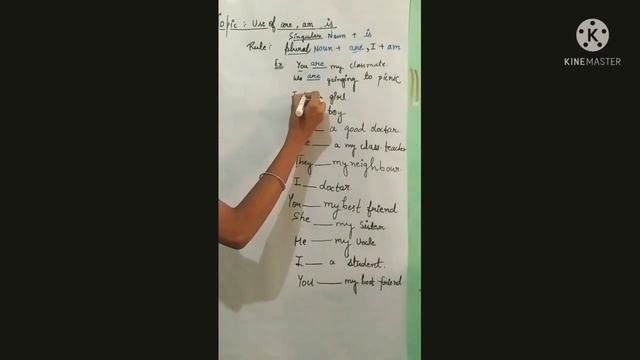 Topic: Use of are, am, is
Singular Noun + is
Rule: plural Noun + are, I + am
Ex You are my classmate.
We are goinging to picnic
I girl
boy
a good doctor
a my class teacher
They ___ my neighbour
I ___ doctor.
You ___ my best friend
She ___ my Sister
He ___ my Uncle
I ___ a student.
You ___ my best friend
KINEMASTER